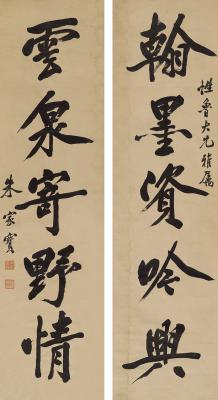 翰墨資吟興
性魯大兄雅屬
雲泉寄野情
朱家寶